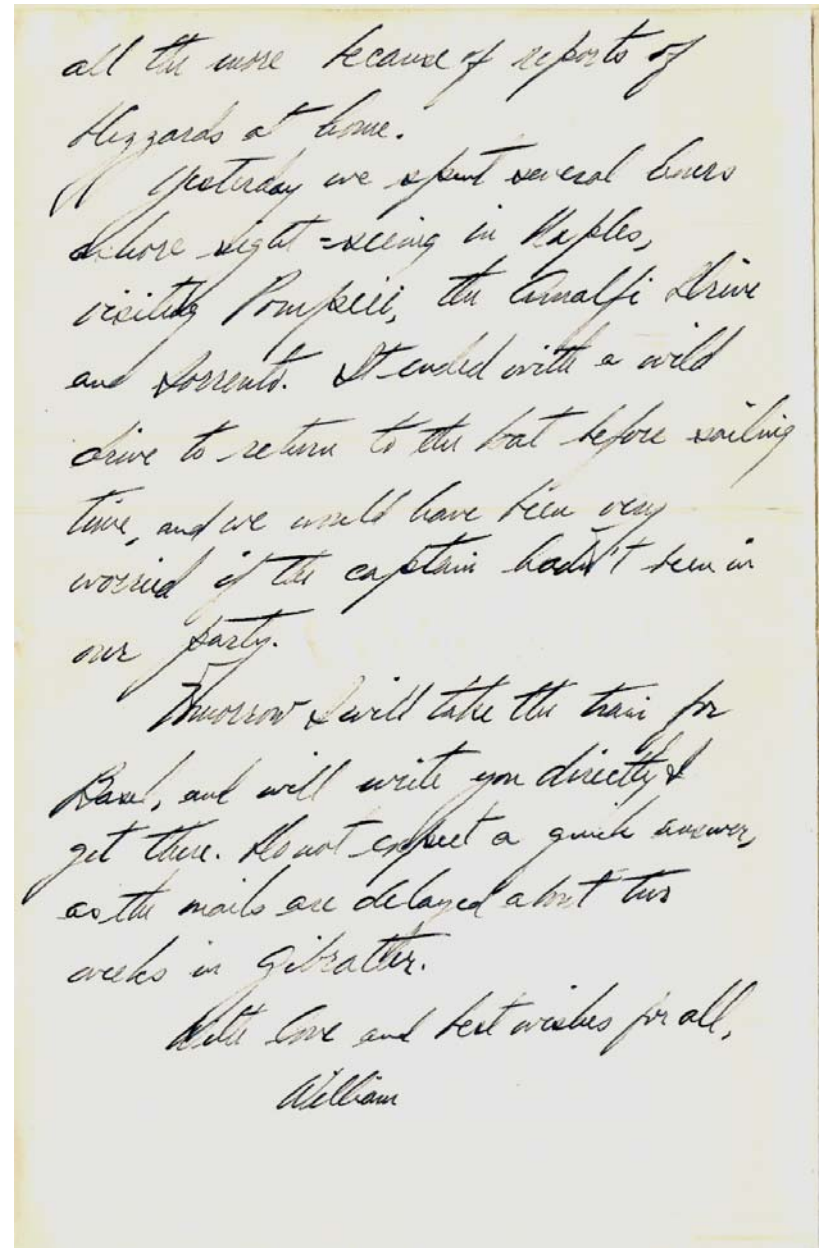 all the more because of reports of
blizzards at home.
Yesterday we spent several hours
ashore sight-seeing in Naples,
visiting Pompeii, the Amalfi Drive
and Sorrento. It ended with a wild
drive to return to the boat before sailing
time, and we would have been very
worried if the captain hadn't been in
our party.
Tomorrow I will take the train for
Basel, and will write you directly I
get there. Do not expect a quick answer,
as the mails are delayed about two
weeks in Gibralter.
With love and best wishes for all,
William